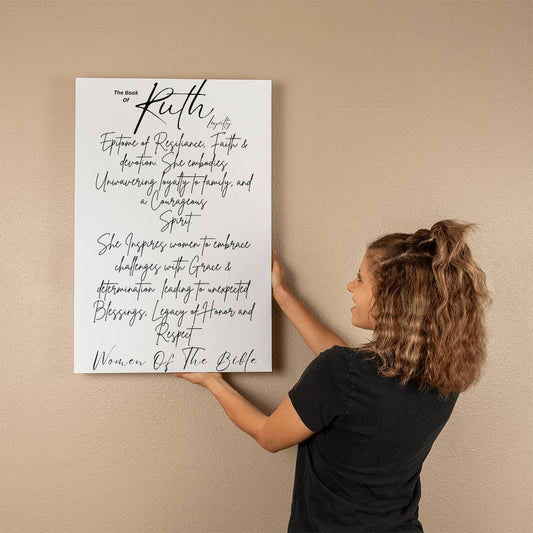 The Book
Of
Ruth
Loyalty
Epitome of Resiliance, Faith &
devotion. She embodies
Unwavering loyalty to family, and
a Courageous
Spirit
She Inspires women to embrace
challenges with Grace &
determination leading to unexpected
Blessings, Legacy of Honor and
Respect
Women Of The Bible